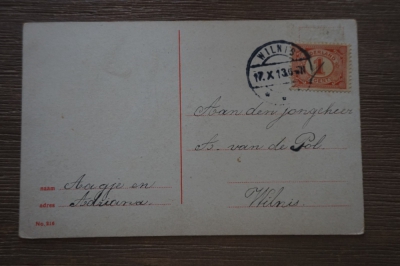 WILNIS
17.X.13.6-7N
1
Aan den jongeheer
A. van de Pol.
Wilnis
naam Aagje en
adres Adriana.
No. 518